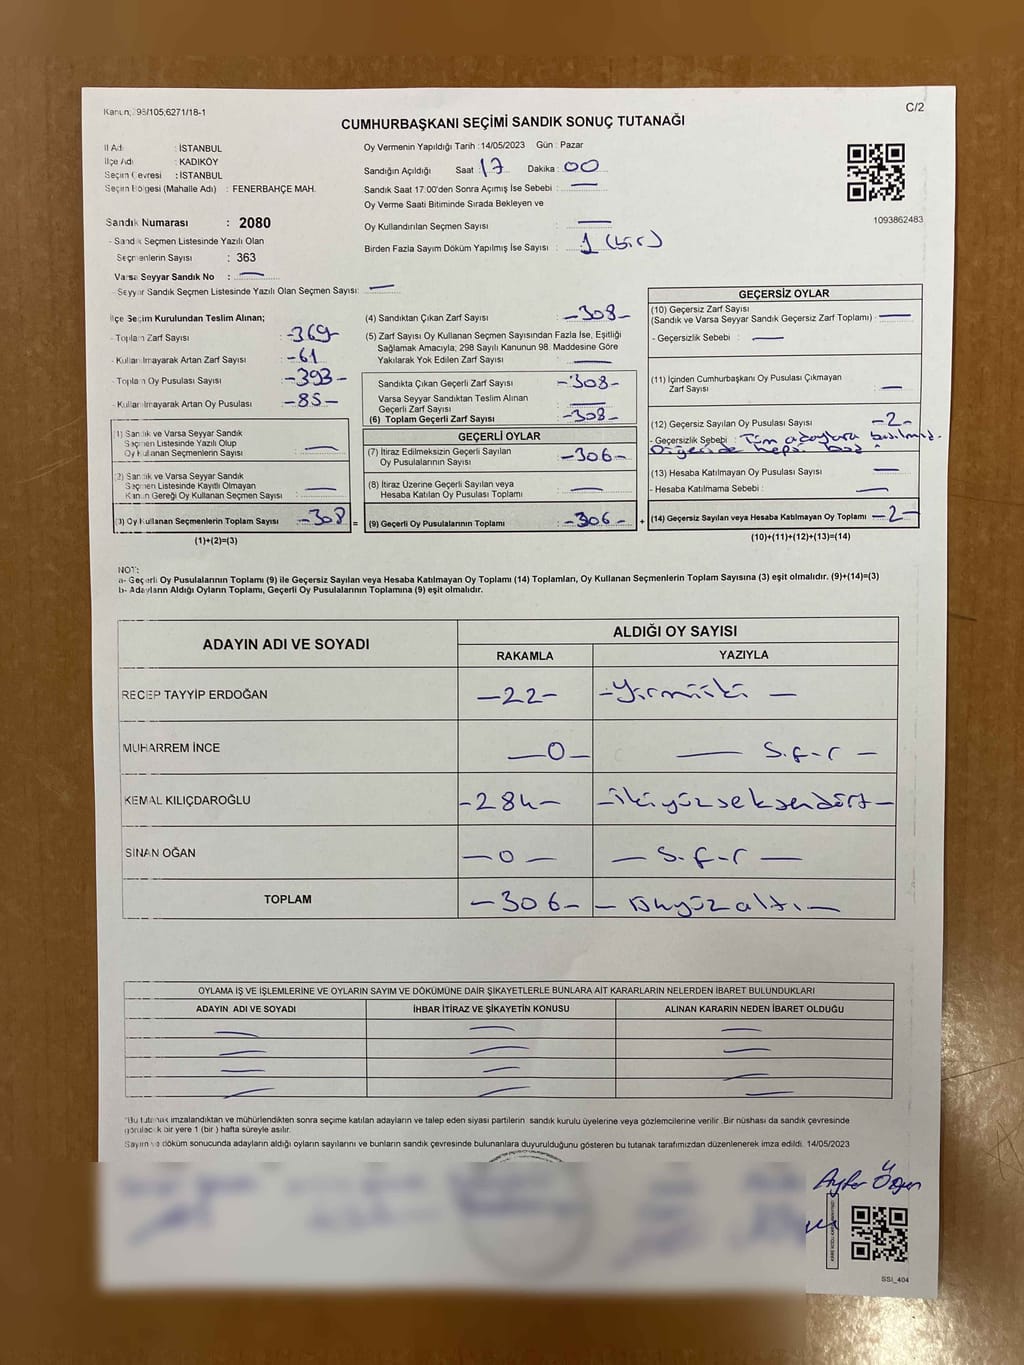 Kanun; 298/105;6271/18-1
C/2
CUMHURBAŞKANI SEÇİMİ SANDIK SONUÇ TUTANAĞI
İl Adı : İSTANBUL
İlçe Adı : KADIKÖY
Seçim Çevresi : İSTANBUL
Seçim Bölgesi (Mahalle Adı) : FENERBAHÇE MAH.
Oy Vermenin Yapıldığı Tarih : 14/05/2023 Gün : Pazar
Sandığın Açıldığı Saat : 17 Dakika : 00
Sandık Saat 17:00'den Sonra Açımış İse Sebebi : —
Oy Verme Saati Bitiminde Sırada Bekleyen ve
Oy Kullandırılan Seçmen Sayısı : —
Birden Fazla Sayım Döküm Yapılmış İse Sayısı : 1 (bir)
1093862483
Sandık Numarası : 2080
- Sandık Seçmen Listesinde Yazılı Olan
Seçmenlerin Sayısı : 363
Varsa Seyyar Sandık No : —
- Seyyar Sandık Seçmen Listesinde Yazılı Olan Seçmen Sayısı: —
İlçe Seçim Kurulundan Teslim Alınan;
- Toplam Zarf Sayısı : -369-
- Kullanılmayarak Artan Zarf Sayısı : -61
- Toplam Oy Pusulası Sayısı : -393-
- Kullanılmayarak Artan Oy Pusulası : -85-
(1) Sandık ve Varsa Seyyar Sandık
Seçmen Listesinde Yazılı Olup
Oy Kullanan Seçmenlerin Sayısı : —
(2) Sandık ve Varsa Seyyar Sandık
Seçmen Listesinde Kayıtlı Olmayan
Kanun Gereği Oy Kullanan Seçmen Sayısı : —
(3) Oy Kullanan Seçmenlerin Toplam Sayısı : -308 =
(1)+(2)=(3)
(4) Sandıktan Çıkan Zarf Sayısı : -308-
(5) Zarf Sayısı Oy Kullanan Seçmen Sayısından Fazla İse, Eşitliği
Sağlamak Amacıyla, 298 Sayılı Kanunun 98. Maddesine Göre
Yakılarak Yok Edilen Zarf Sayısı : —
Sandıkta Çıkan Geçerli Zarf Sayısı : -308-
Varsa Seyyar Sandıktan Teslim Alınan
Geçerli Zarf Sayısı : —
(6) Toplam Geçerli Zarf Sayısı : -308-
GEÇERLİ OYLAR
(7) İtiraz Edilmeksizin Geçerli Sayılan
Oy Pusulalarının Sayısı : -306-
(8) İtiraz Üzerine Geçerli Sayılan veya
Hesaba Katılan Oy Pusulası Toplamı : —
(9) Geçerli Oy Pusulalarının Toplamı : -306- +
GEÇERSİZ OYLAR
(10) Geçersiz Zarf Sayısı
(Sandık ve Varsa Seyyar Sandık Geçersiz Zarf Toplamı) : —
- Geçersizlik Sebebi : —
(11) İçinden Cumhurbaşkanı Oy Pusulası Çıkmayan
Zarf Sayısı : —
(12) Geçersiz Sayılan Oy Pusulası Sayısı : -2-
- Geçersizlik Sebebi : Tüm adaylara basılmış.
Diğeride hepsi boş
(13) Hesaba Katılmayan Oy Pusulası Sayısı : —
- Hesaba Katılmama Sebebi : —
(14) Geçersiz Sayılan veya Hesaba Katılmayan Oy Toplamı : -2-
(10)+(11)+(12)+(13)=(14)
NOT:
a- Geçerli Oy Pusulalarının Toplamı (9) ile Geçersiz Sayılan veya Hesaba Katılmayan Oy Toplamı (14) Toplamları, Oy Kullanan Seçmenlerin Toplam Sayısına (3) eşit olmalıdır. (9)+(14)=(3)
b- Adayların Aldığı Oyların Toplamı, Geçerli Oy Pusulalarının Toplamına (9) eşit olmalıdır.
ADAYIN ADI VE SOYADI ALDIĞI OY SAYISI
RAKAMLA YAZIYLA
RECEP TAYYİP ERDOĞAN -22- -Yirmiiki -
MUHARREM İNCE -0- - Sıfır -
KEMAL KILIÇDAROĞLU -284- -ikiyüzseksendört-
SİNAN OĞAN -0- - Sıfır -
TOPLAM -306- - üçyüzaltı -
OYLAMA İŞ VE İŞLEMLERİNE VE OYLARIN SAYIM VE DÖKÜMÜNE DAİR ŞİKAYETLERLE BUNLARA AİT KARARLARIN NELERDEN İBARET BULUNDUKLARI
ADAYIN ADI VE SOYADI İHBAR İTİRAZ VE ŞİKAYETİN KONUSU ALINAN KARARIN NEDEN İBARET OLDUĞU
"Bu tutanak imzalandıktan ve mühürlendikten sonra seçime katılan adayların ve talep eden siyasi partilerin sandık kurulu üyelerine veya gözlemcilerine verilir. Bir nüshası da sandık çevresinde
görülecek bir yere 1 (bir) hafta süreyle asılır.
Sayım ve döküm sonucunda adayların aldığı oyların sayılarını ve bunların sandık çevresinde bulunanlara duyurulduğunu gösteren bu tutanak tarafımızdan düzenlenerek imza edildi. 14/05/2023
Ayfer Özgen
SSI_404